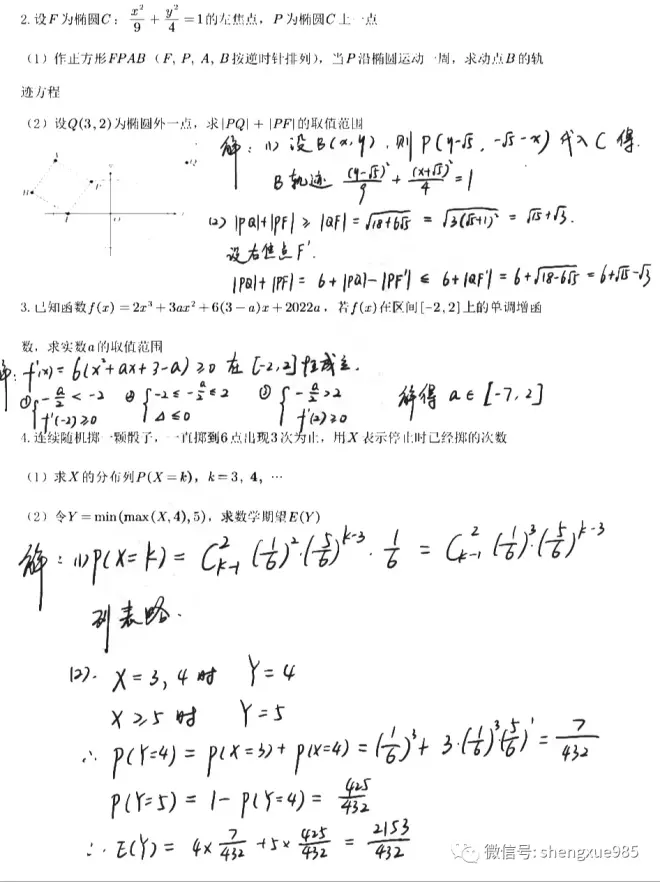 2.设F为椭圆C：x²/9 + y²/4 =1的左焦点，P为椭圆C上一点
（1）作正方形FPAB（F, P, A, B按逆时针排列），当P沿椭圆运动一周，求动点B的轨
迹方程
（2）设Q(3,2)为椭圆外一点，求|PQ|+|PF|的取值范围
解：(1) 设B(x,y)，则 P(y-√5, -√5-x) 代入C得
B轨迹 (y-√5)²/9 + (x+√5)²/4 = 1
(2) |PQ|+|PF| ≥ |QF| = √(18+6√5) = √(3(√5+1)²) = √15+√3.
设右焦点F'.
|PQ|+|PF| = 6+|PQ|-|PF'| ≤ 6+|QF'| = 6+√(18-6√5) = 6+√15-√3
3.已知函数f(x)=2x³+3ax²+6(3-a)x+2022a，若f(x)在区间[-2,2]上的单调增函
数，求实数a的取值范围
解: f'(x)=6(x²+ax+3-a)≥0 在[-2,2]恒成立.
① { -a/2 < -2 f'(-2)≥0 ② { -2≤-a/2≤2 Δ≤0 ③ { -a/2>2 f'(2)≥0 解得 a∈[-7,2]
4.连续随机掷一颗骰子，一直掷到6点出现3次为止，用X表示停止时已经掷的次数
（1）求X的分布列P(X=k)，k=3, 4, ⋯
（2）令Y=min(max(X,4),5)，求数学期望E(Y)
解：(1) P(X=k) = C²ₖ₋₁(1/6)²·(5/6)^(k-3)·1/6 = C²ₖ₋₁(1/6)³·(5/6)^(k-3)
列表略.
(2). X=3,4时 Y=4
X≥5时 Y=5
∴ P(Y=4) = P(X=3)+P(X=4) = (1/6)³+3·(1/6)³(5/6)¹ = 7/432
P(Y=5) = 1-P(Y=4) = 425/432
∴ E(Y) = 4×7/432 +5×425/432 = 2153/432
微信号: shengxue985